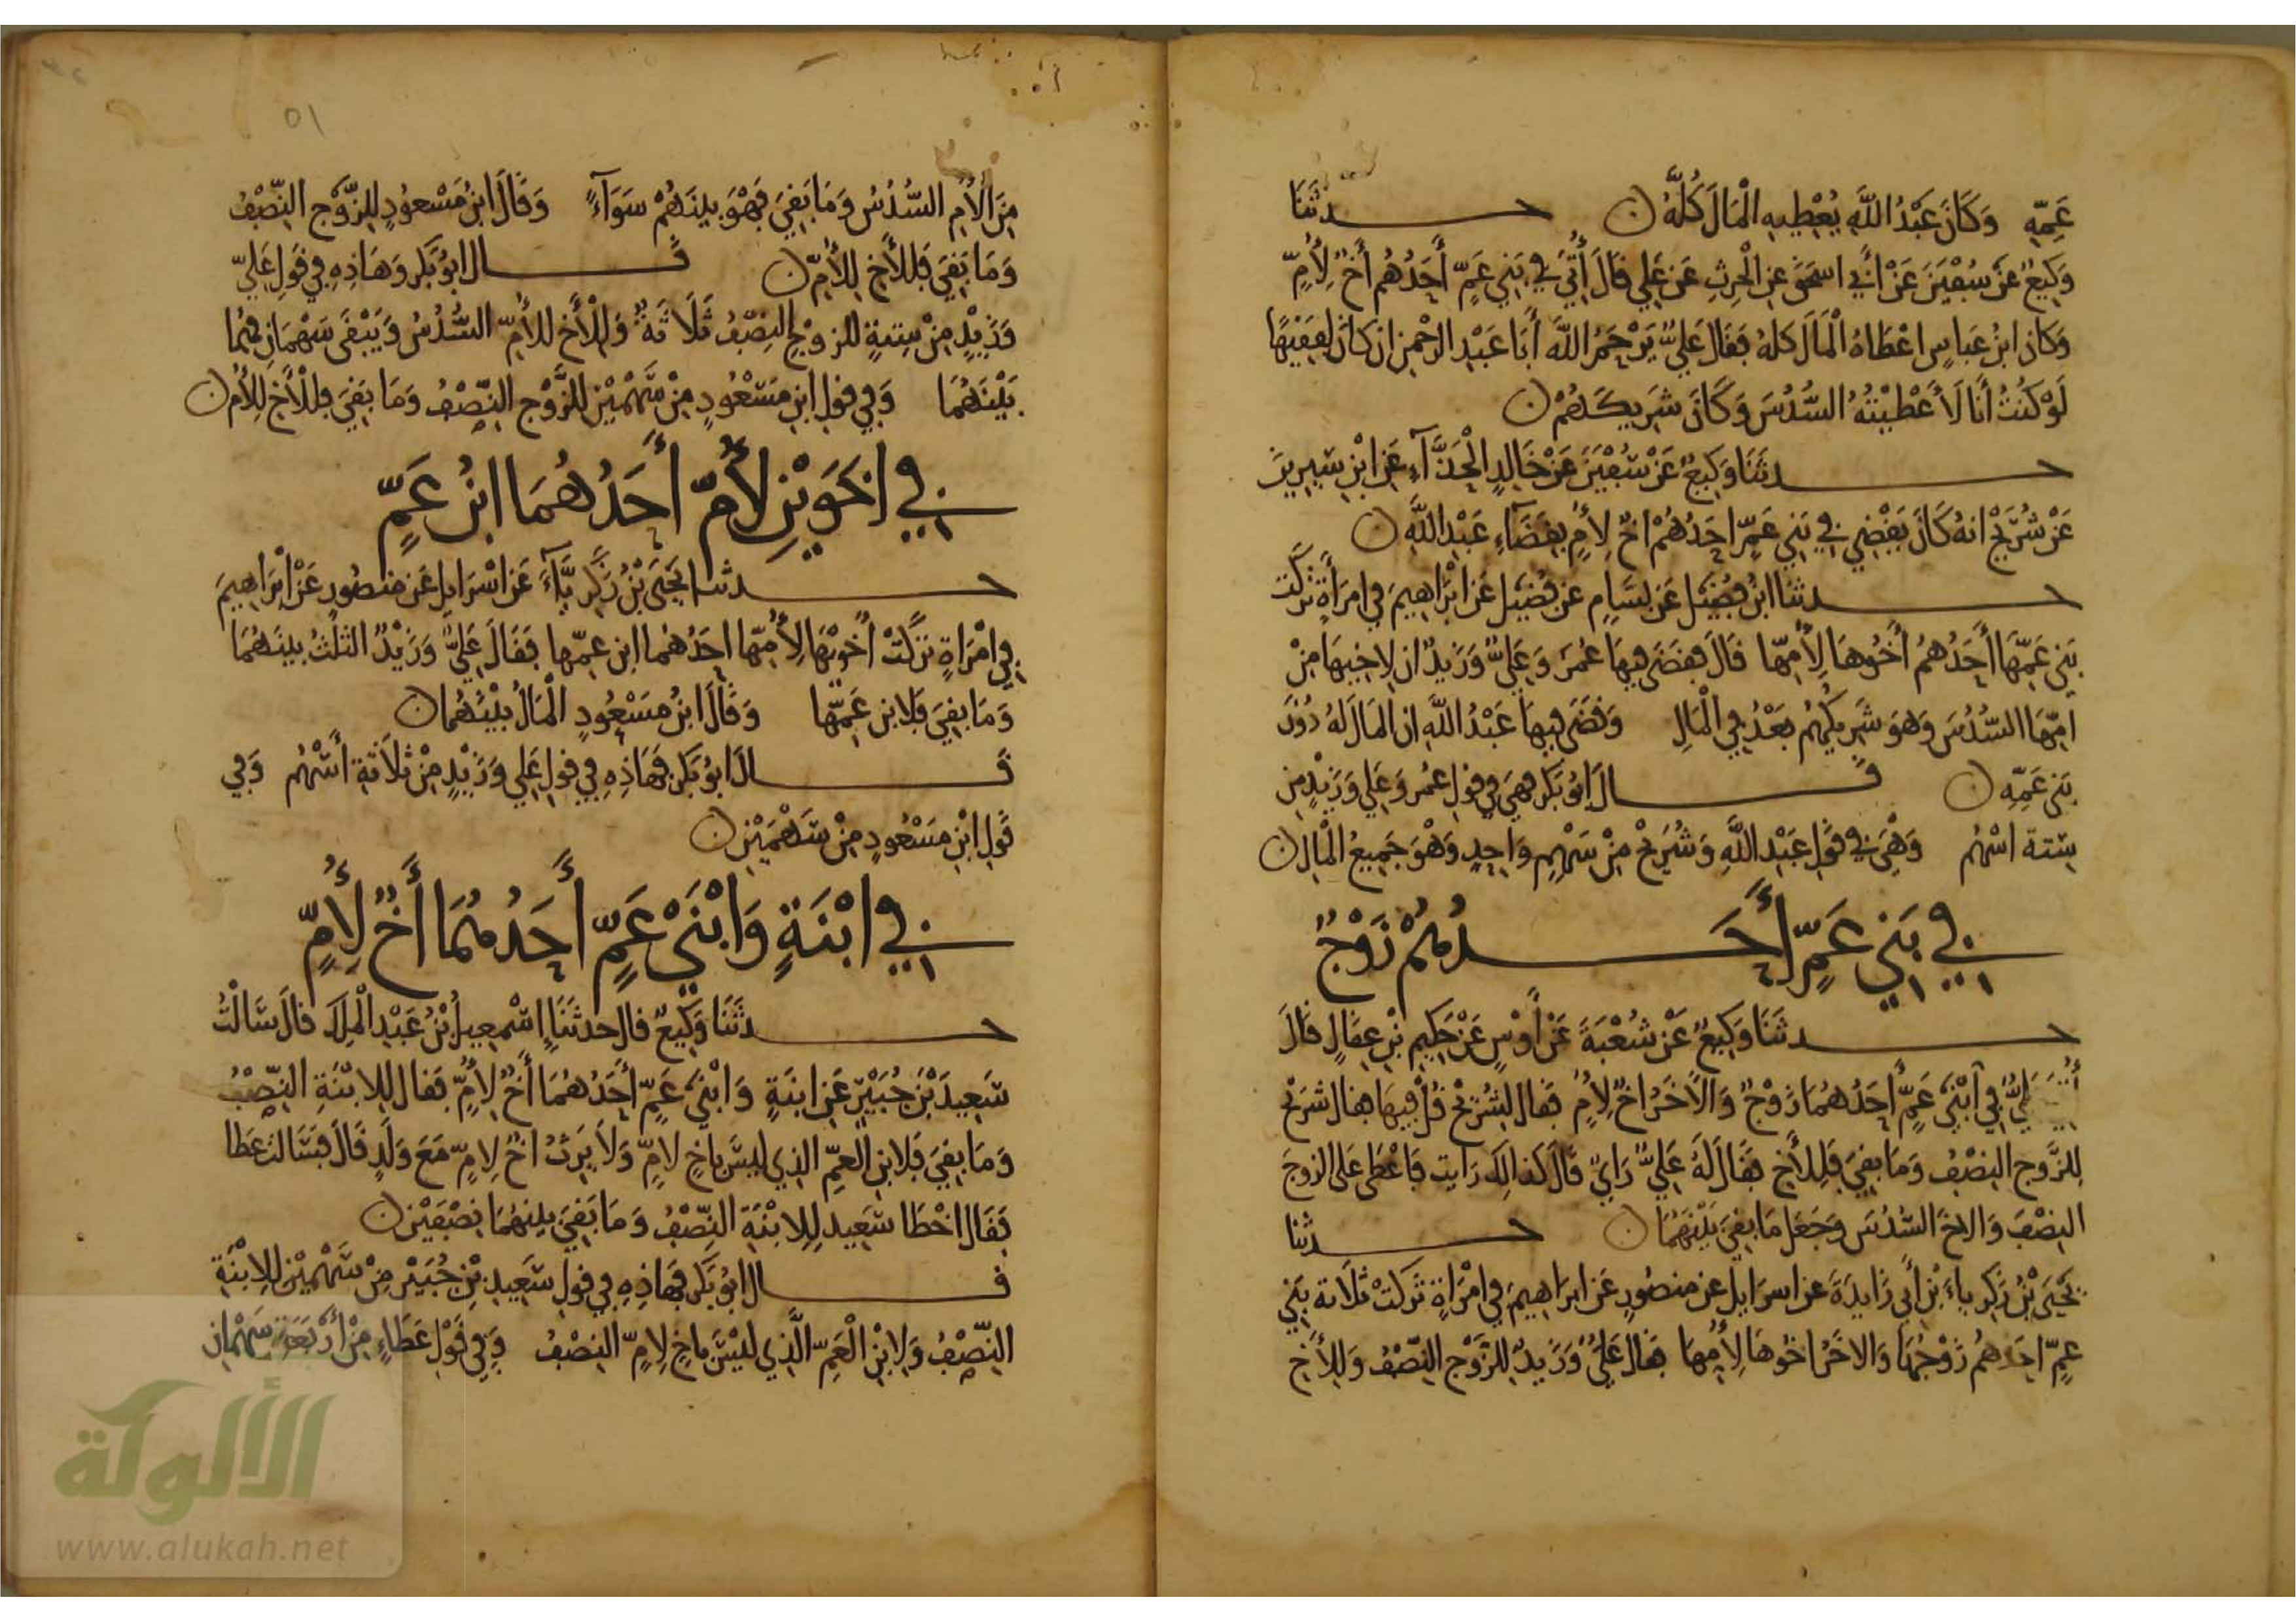 عَمِّهِ وَكَانَ عَبْدُ اللَّهِ يُعْطِيهِ الْمَالَ كُلَّهُ ن حدثَنَا
وَكِيعٌ عَنْ سُفْيَنَ عَنْ أَبِي اسحَقَ عَنِ الْحَرِثِ عَن عَلِي قَالَ أُتِيَ فِي بَنِي عَمٍّ أَحَدُهُم أَخٌ لِأُمٍّ
وَكَانَ ابنُ عَبَاسٍ اعْطَاهُ الْمَالَ كلهُ فَقَالَ عَلِيٌّ يَرْحَمُ اللَّهُ أَبَا عَبْدِ الرحْمنِ ان كَانَ لفَقيهًا
لَوْ كُنْتُ أَنَا لَأَعْطَيْتُهُ السُّدُسَ وَكَانَ شَرِيكَهُمْ ن
حدثَنَا وَكِيعٌ عَنْ سُفْيَنَ عَنْ خَالِدٍ الْحَذَّآءِ عَنِ ابْنِ سِيرِينَ
عَنْ شُرَيْحٍ انهُ كَانَ يَقْضِي فِي بَنِي عَمٍّ احَدُهُمْ اخٌ لِأُمٍ بِقَضَآءِ عَبْدِ اللَّهِ ن
حدثنا ابْنُ فُضَيْلٍ عَن بَسَّامٍ عن فُضَيْلٍ عَن ابْرَاهِيمَ فِي امرَأَةٍ تَرَكَت
بَنِي عَمِّهَا أَحَدُهُمُ أَخُوهَا لِأُمِّهَا قَالَ فَقَضَى فِيهَا عُمَرُ وَعَلِيٌّ وَزَيدٌ ان لاخِيهَا مِنْ
امِّهَا السُّدُسَ وَهوَ شَرِيكُهُم بَعْدُ فِي الْمَالِ وَقَضَى فِيهَا عَبْدُ اللَّهِ ان المَالَ لَهُ دُونَ
بَنِي عَمِّهِ ن قَال ابُو بَكرٍ فهِيَ فِي قولِ عُمَر وَعَلِي وَزَيْدٍ مِن
سِتة اسْهُم وَهْيَ فِي قَوْلِ عَبْدِ اللَّهِ وَشُرَيْحٍ مِنْ سَهْمٍ وَاحِدٍ وَهْوَ جَمِيعُ الْمَالِ ن
فِي بَنِي عَمٍّ أَحَدُهُمْ زَوْجٌ
حدثَنَا وَكِيعٌ عَنْ شُعْبَةَ عَنْ أَوْسٍ عَنْ حَكِيمِ بْنِ عِقَالٍ قَالَ
أُتِيَ عَلِيٌّ فِي ابْنَي عَمٍّ أَحَدُهُمَا زَوْجٌ وَالْأَخَرُ اخٌ لِأُمٍ فَقال لِشُرَيْحٍ قُلْ فِيهَا فقال شُرَيْحٌ
للزَّوجِ النِصْفُ وَمَا بقِيَ فَلِلأَخِ فقَالَ لَهُ عَلِيٌّ رَايٌ قَالَ كذالِكَ رَايت فَاعْطَى عَلى الزوجَ
النِصْفَ وَالاخَ السُّدُسَ وَجَعَلَ مَا بقِيَ بَيْنَهُمَا ن حدثنا
يَحْيَى بْنُ زَكَرِيَاءَ بْنِ أَبِي زَايِدَةَ عن اسرَايلَ عن مَنصُورٍ عَن ابرَاهِيمَ فِي امْرَاةٍ تَرَكَتْ ثَلَاثة بَنِي
عمٍّ احَدُهُمُ زَوْجُهَا وَالاخَرُ اخُوهَا لِأُمِّهَا فَقالَ عَلِيٌّ وَزَيدٌ للزَّوْجِ النِّصْفُ وَلِلأَخِ
٥١
مِنَ الْأُمِ السُّدُسُ وَمَا بَقِيَ فَهْوَ بينَهُمْ سَوَآءً وَقَالَ ابنُ مَسْعودٍ للزَّوْجِ النِّصْفُ
وَمَا بَقِيَ فَلِلأَخِ لِلأُمِّ ن قَال ابُو بَكرٍ وَهَاذِهِ فِي قَولِ عَلِيٍّ
وَزَيْدٍ مِنْ سِتةٍ للزوْجِ النِصْفُ ثَلَاثَةٌ وَلِلْأَخِ للأُمِّ السُّدُسُ وَيَبْقَى سَهْمَانِ فهُمَا
بَيْنَهُمَا وَفِي قولِ ابنِ مَسْعُودٍ مِنْ سَهْمَيْنِ للزَّوْجِ النِّصْفُ وَمَا بَقِيَ فلِلْأَخِ لِلأُمِ ن
فِي اخَوَيْنِ لِأُمٍّ أَحَدُهُمَا ابْنُ عَمٍّ
حدثنا يَحْيَى بْنُ زَكَرِيَّآءَ عَن اسْرَايِلَ عَن مَنصُورٍ عَنْ ابْرَاهِيمَ
فِي امْرَاةٍ تَرَكَتْ أَخَوَيْهَا لِأُمِّهَا احَدُهُما ابن عمِّها فَقَالَ عَلِيٌّ وَزَيْدٌ الثلُثُ بينَهُمَا
وَمَا بَقِيَ فَلابن عَمِّها وَقَالَ ابنُ مَسْعُودٍ الْمَالُ بيْنَهُمَا ن
قَالَ ابُو بَكرٍ فهَاذِهِ فِي قولِ عَلِي وَزَيْدٍ مِنْ ثلَاثَةِ أَسْهُم وَفِي
قَولِ ابْنِ مَسْعُودٍ مِنْ سَهْمَيْنِ ن
فِي ابْنَةٍ وَابْنَيْ عَمٍّ أَحَدُهُمَا أَخٌ لِأُمٍّ
حدثَنَا وَكِيعٌ قال حدثَنَا إِسْمعِيلُ بْنُ عَبْدِ الْمَلِكِ قالَ سَالْتُ
سَعِيدَ بْنَ جُبَيْرٍ عَنِ ابنَةٍ وَابْنَي عَمٍّ أَحَدُهُمَا أَخٌ لِأُمٍّ فقال لِلابْنَةِ النِّصْفُ
وَمَا بَقِيَ فَلابنِ العَمِّ الذِي لَيْسَ باخٍ لامٍّ وَلَا يَرِثُ اخٌ لِامٍّ مَعَ وَلَدٍ قَالَ فسَالت عَطَا
فقَال اخْطَا سَعِيد لِلِابْنَةِ النِّصْفُ وَمَا بَقِيَ بينهُمَا نِصْفَيْنِ ن
قَال ابُو بَكرٍ فهَاذِهِ فِي قولِ سَعِيدِ بْنِ جُبَيْرٍ مِنْ سَهْمَيْنِ للِابْنَةِ
النِّصْفُ وَلِابْنِ الْعَمِّ الَّذِي لَيْسَ باخٍ لِامٍّ النِصْفُ وَفِي قَوْلِ عَطَاءٍ مِنْ أَرْبَعَةٍ سَهْمَانِ
الألوكة
www.alukah.net